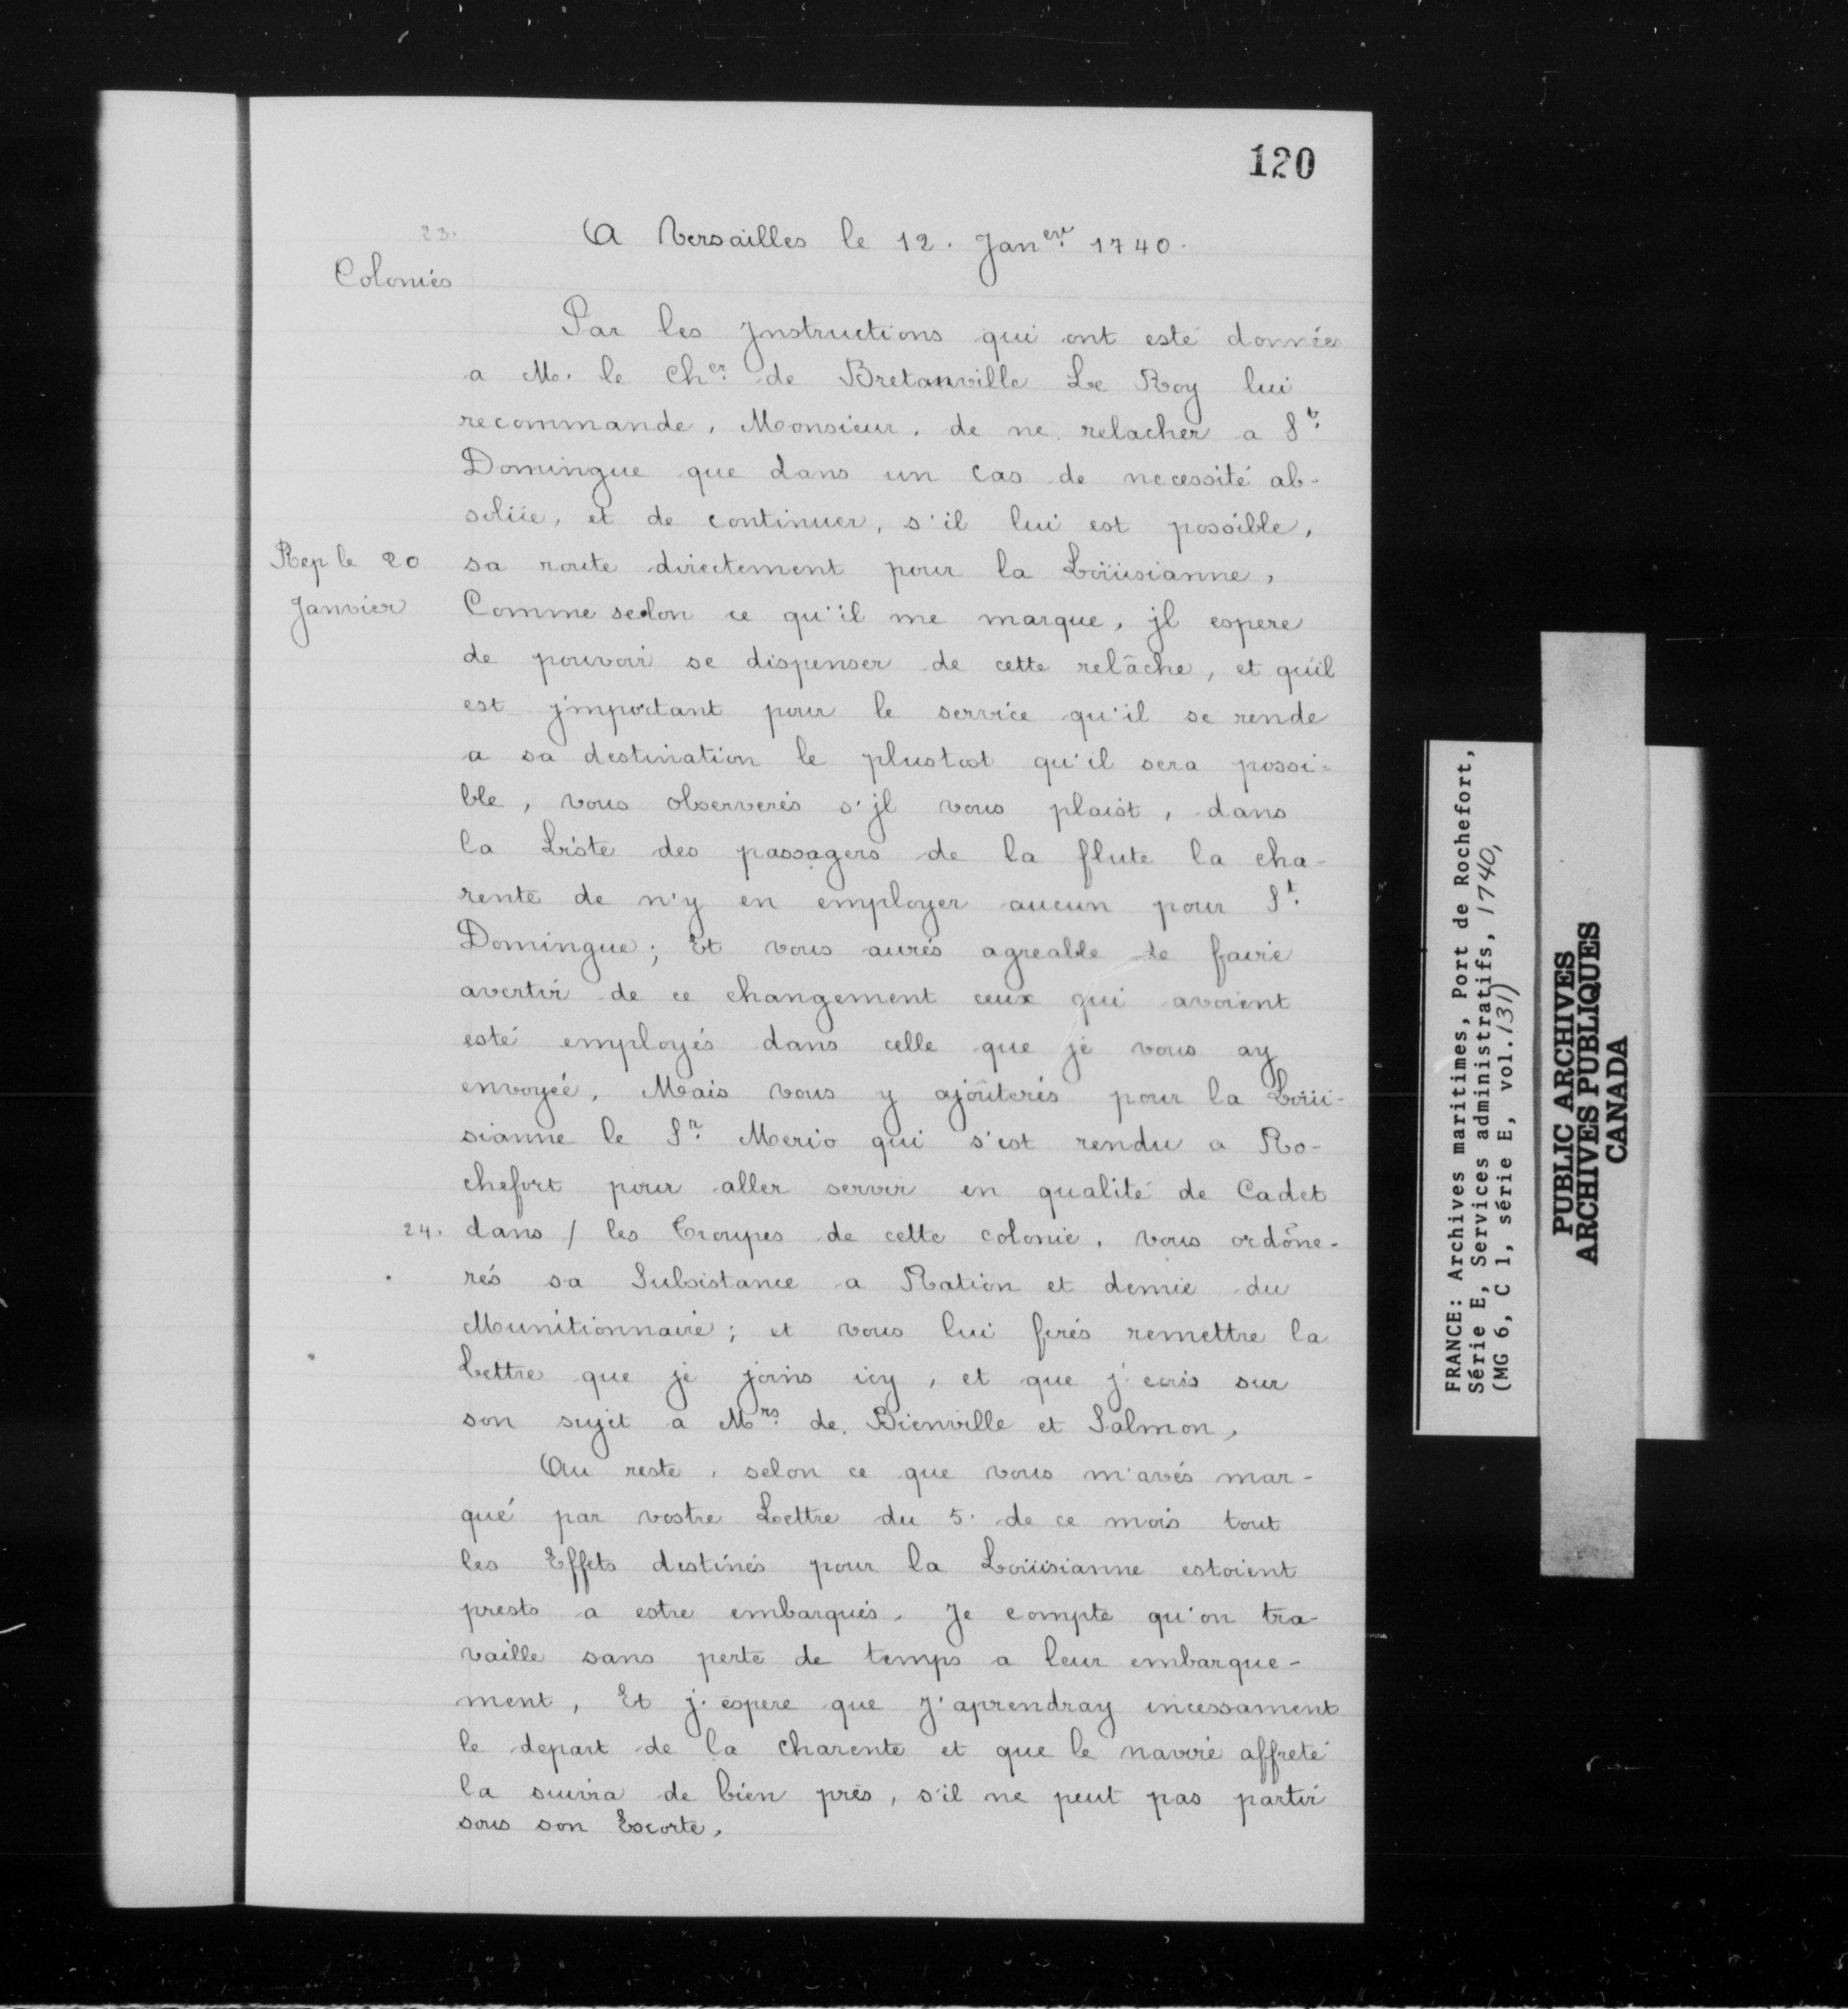 120
23.
A Versailles le 12. Jan^er. 1740.
Colonies
Par les Jnstructions qui ont esté données
a M. le Ch^er. de Bretanville Le Roy lui
recommande, Monsieur, de ne relacher a S^t.
Domingue que dans un Cas de necessité ab-
solüe, et de continuer, s'il lui est possible,
Rep le 20
Janvier
sa route directement pour la Loüisianne,
Comme selon ce qu'il me marque, jl espere
de pouvoir se dispenser de cette relâche, et qu'il
est jmportant pour le service qu'il se rende
a sa destination le plustost qu'il sera possi=
ble, vous observerés s'jl vous plaist, dans
la Liste des passagers de la flute la cha-
rente de n'y en employer aucun pour S^t.
Domingue; Et vous aurés agreable de faire
avertir de ce changement ceux qui avoient
esté employés dans celle que je vous ay
envoyée, Mais vous y ajoûterés pour la Loüi-
sianne le S^r. Merio qui s'est rendu a Ro-
chefort pour aller servir en qualité de Cadet
24. dans / les Troupes de cette colonie. vous ordône-
rés sa Subsistance a Ration et demie du
Munitionnaire; et vous lui ferés remettre la
Lettre que je joins icy, et que j'ecris sur
son sujet a M^rs. de Bienville et Salmon,
Au reste, selon ce que vous m'avés mar-
qué par vostre Lettre du 5. de ce mois tout
les Effets destinés pour la Loüisianne estoient
prests a estre embarqués. Je compte qu'on tra-
vaille sans perte de temps a leur embarque-
ment, Et j'espere que J'aprendray incessament
le depart de la Charente et que le navire affreté
la suivra de bien près, s'il ne peut pas partir
sous son Escorte,
FRANCE: Archives maritimes, Port de Rochefort,
Série E, Services administratifs, 1740,
(MG 6, C 1, série E, vol. 131)
PUBLIC ARCHIVES
ARCHIVES PUBLIQUES
CANADA